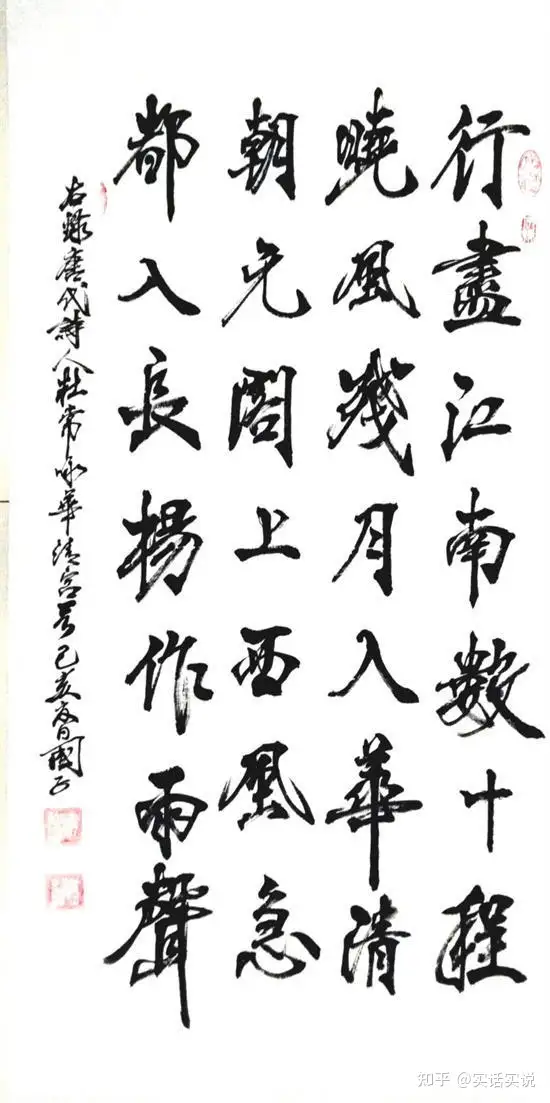 行盡江南數十程
曉風殘月入華清
朝元閣上西風急
都入長楊作雨聲
右錄唐代詩人杜常咏華清宮 己亥春日國正
知乎 @实话实说